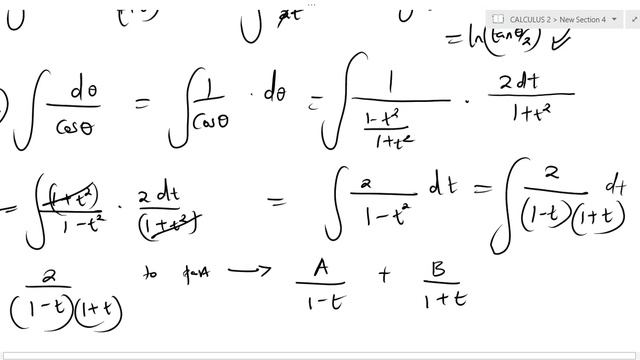 CALCULUS 2 > New Section 4
2t
= ln(tan θ/2) ✓
) ∫ dθ/cosθ = ∫ 1/cosθ · dθ = ∫ 1/((1-t²)/(1+t²)) · 2dt/(1+t²)
= ∫ (1+t²)/(1-t²) · 2dt/(1+t²) = ∫ 2/(1-t²) dt = ∫ 2/((1-t)(1+t)) dt
2/((1-t)(1+t)) to → A/(1-t) + B/(1+t)